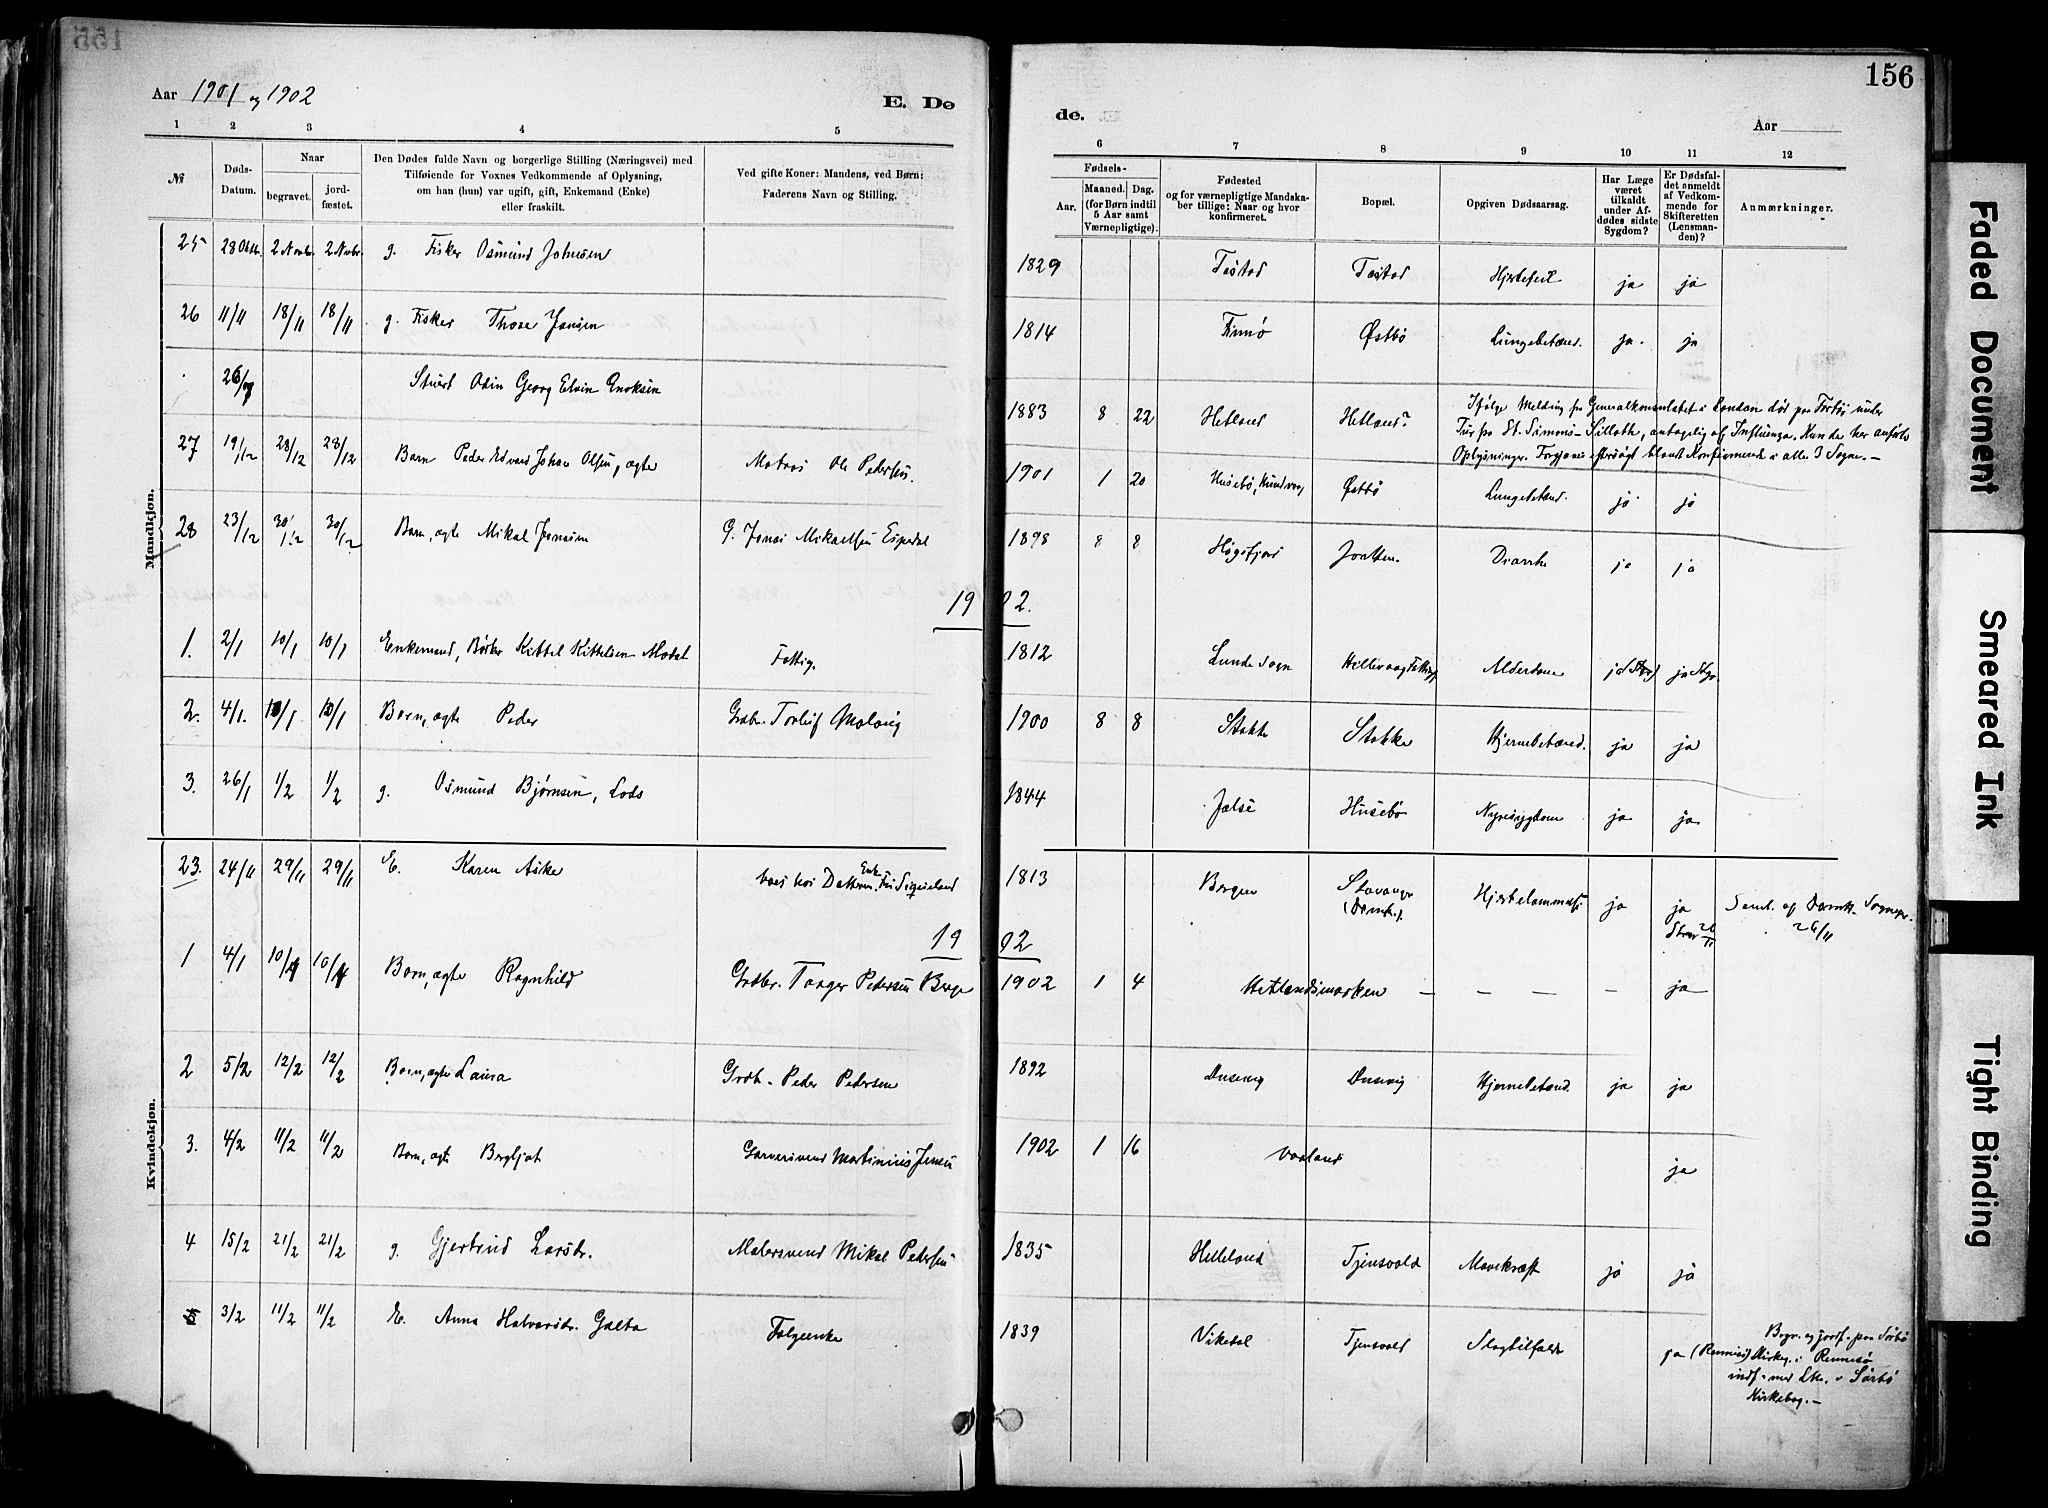 155
156
Aar 1901 og 1902
E. Dø
de.
Aar
1 2 3 4 5 6 7 8 9 10 11 12
№
Døds-Datum.
Naar
begravet.
jord-fæstet.
Den Dødes fulde Navn og borgerlige Stilling (Næringsvei) med
Tilføiende for Voxnes Vedkommende af Oplysning,
om han (hun) var ugift, gift, Enkemand (Enke)
eller fraskilt.
Ved gifte Koner: Mandens, ved Børn:
Faderens Navn og Stilling.
Fødsels-
Aar.
Maaned. Dag.
(for Børn indtil
5 Aar samt
Værnepligtige).
Fødested
og for værnepligtige Mandska-
ber tillige: Naar og hvor
konfirmeret.
Bopæl.
Opgiven Dødsaarsag.
Har Læge
været
tilkaldt
under Af-
dødes sidste
Sygdom?
Er Dødsfal-
det anmeldt
af Vedkom-
mende for
Skifteretten
(Lensman-
den)?
Anmærkninger.
Mandkjøn.
25 28 Oktbr. 2 Novbr. 2 Novbr. g. Fisker Osmund Johnsen 1829 Tastad Tastad Hjertefeil ja ja
26 11/11 18/11 18/11 g. Fisker Thore Jansen 1814 Finnø Østbø Lungebetænd. ja. ja
Stuert Odin Georg Elvin Enoksen 1883 8 22 Hetland Hetland?
Ifølge Melding fra Generalkonsulatet i London død paa Forbøi under
Tur fra St. Simons - Silloth, antagelig af Influenza. Kun de her anførte
Oplysninger. Forgjæves eftersøgt blandt Konfirmerede i alle 3 Sogne. –
27 19/12 28/12 28/12 Barn Peder Edvard Johan Olsen, ægte Matros Ole Pedersen. 1901 1 20 Husebø, Hundvaag Østbø Lungebetænd. ja ja
28 23/12 30/12 30/12 Barn, ægte Mikal Jonasen G. Jonas Mikaelsen Espedal 1898 8 8 Høgsfjord Jaatten. Diarrhe ja ja
1902.
1. 2/1 10/1 10/1 Enkemand, Bødker Kittil Kittelsen Modal Fattig. 1812 Lunde Sogn Hillevaag Alderdom ja
2. 4/1. 10/1 10/1 Barn, ægte Peder Grdbr. Torleif Malmig 1900 8 8 Stokke Stokke Hjernebetænd. ja ja
3. 26/1 1/2 1/2 g. Osmund Bjørnsen, Lods 1844 Jælse Husebø Nyresygdom ja ja
Kvindekjøn.
23. 24/11 29/11 29/11 E. Karen Aske boes hos Datteren Enke Fru Sigveland 1813 Bergen Stavanger (Domk.). Hjertelammelse ja ja Saml. af Domk. Sognepr. 26/11
1902
1 4/1 10/1 10/1 Barn, ægte Ragnhild Grdbr. Torger Pedersen Berge 1902 1 4 Hetlandsmarken – – – – ja
2 5/2 12/2 12/2 Barn, ægte Laura Grdb. Peder Pedersen 1892 Dusevig Dusevig Hjernebetænd. ja ja
3. 4/2 11/2 11/2 Barn, ægte Bergljot Garversvend Martinius Jensen 1902 1 16 Vaaland ja
4 15/2 21/2 21/2 g. Gjertrud Larsdr. Malersvend Mikal Pedersen 1835 Helleland Tjensvold Mavekræft ja ja
5 3/2 11/2 11/2 E. Anna Halvarsdr. Galta Folgeenke 1839 Vikedal Tjensvold Slagtilfælde ja (Rennesø)
Begr. og jordf. paa Sørbø
Kirkeg. i Rennesø
indf. med Lbn. i Sørbø
Kirkebog. –
Faded Document
Smeared Ink
Tight Binding